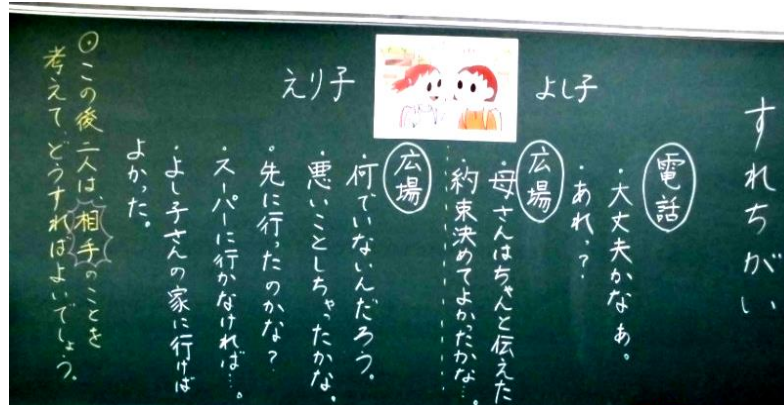 すれちがい
よし子
電話
・大丈夫かなあ。
・あれっ?
広場
・母さんはちゃんと伝えた
・約束決めてよかったかな…。
えり子
広場
・何でいないんだろう。
・悪いことしちゃったかな。
・先に行ったのかな?
・スーパーに行かなければ…。
・よし子さんの家に行けば
よかった。
◎この後二人は、相手のことを
考えて、どうすればよいでしょう。